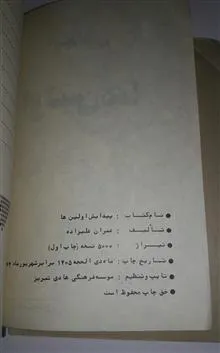 نام کتاب : پیدایش اولین ها
تألیف : عمران علیزاده
تیراژ : ۵۰۰۰ نسخه (چاپ اول)
تاریخ چاپ : ماه ذی الحجه ۱۴۰۵ برابر شهریورماه ۶۴
تایپ و تنظیم : موسسه فرهنگی هادی تبریز
حق چاپ محفوظ است